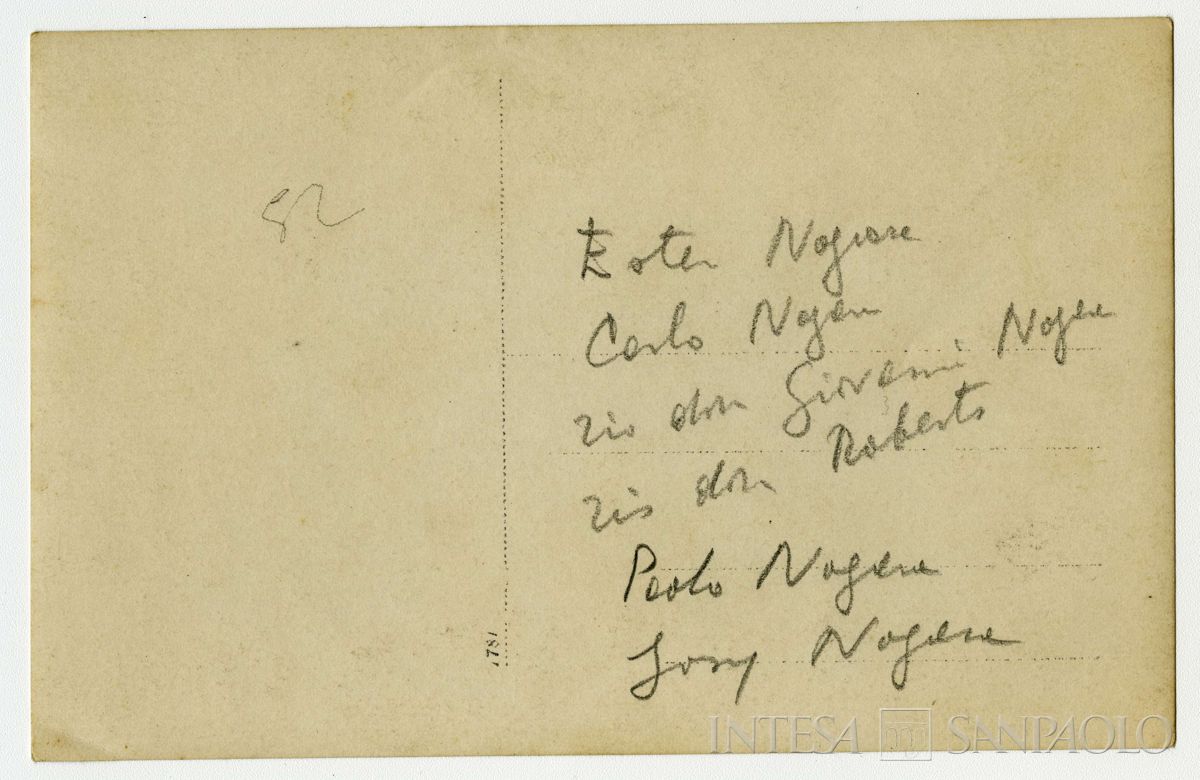 82
Ester Nogara
Carlo Nogara
zio don Giovanni Nogara
zio don Roberto
Paolo Nogara
Josy Nogara
INTESA SANPAOLO